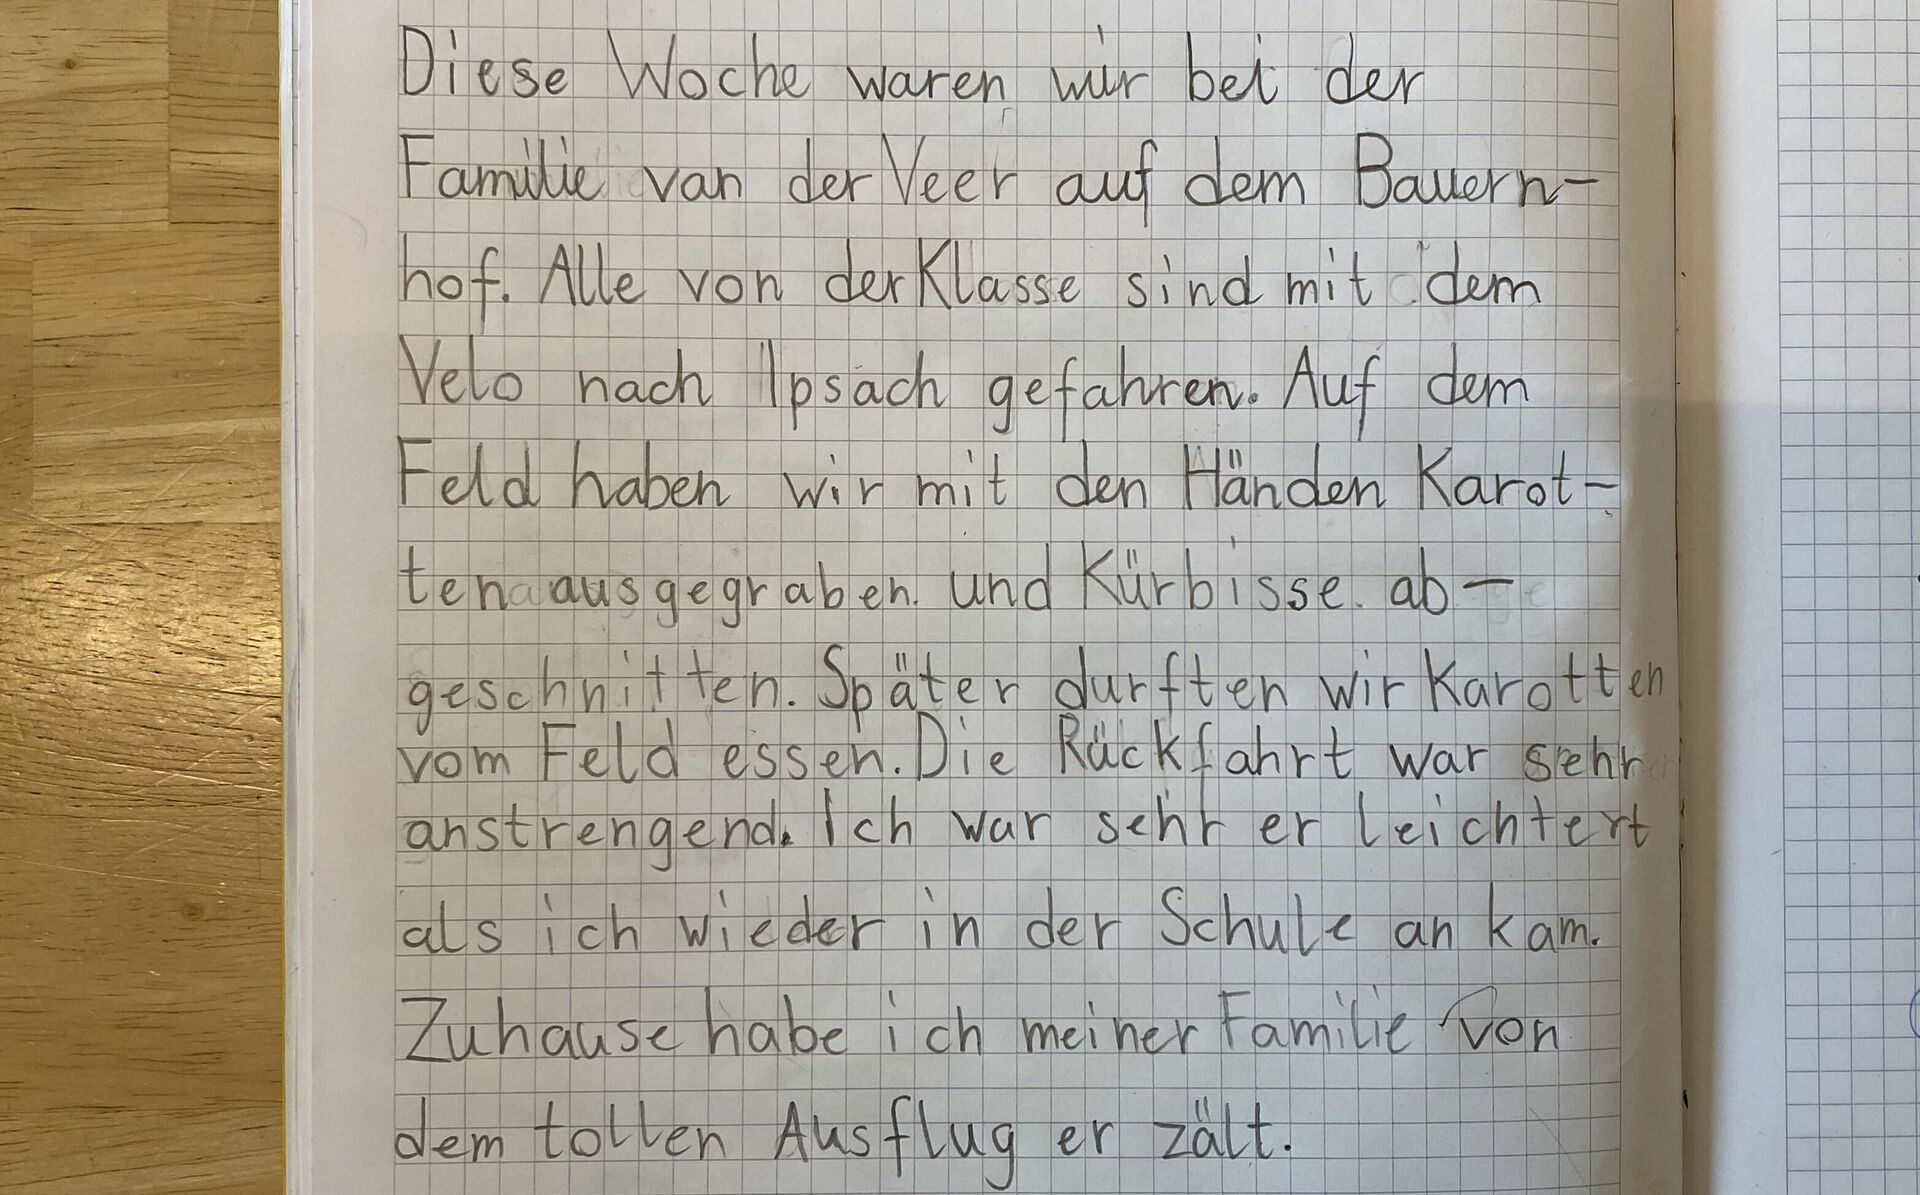 Diese Woche waren wir bei der
Familie van der Veer auf dem Bauern-
hof. Alle von der Klasse sind mit dem
Velo nach Ipsach gefahren. Auf dem
Feld haben wir mit den Händen Karot-
ten ausgegraben und Kürbisse ab-
geschnitten. Später durften wir Karotten
vom Feld essen. Die Rückfahrt war sehr
anstrengend. Ich war sehr er leichtert
als ich wieder in der Schule an kam.
Zuhause habe ich meiner Familie von
dem tollen Ausflug er zält.